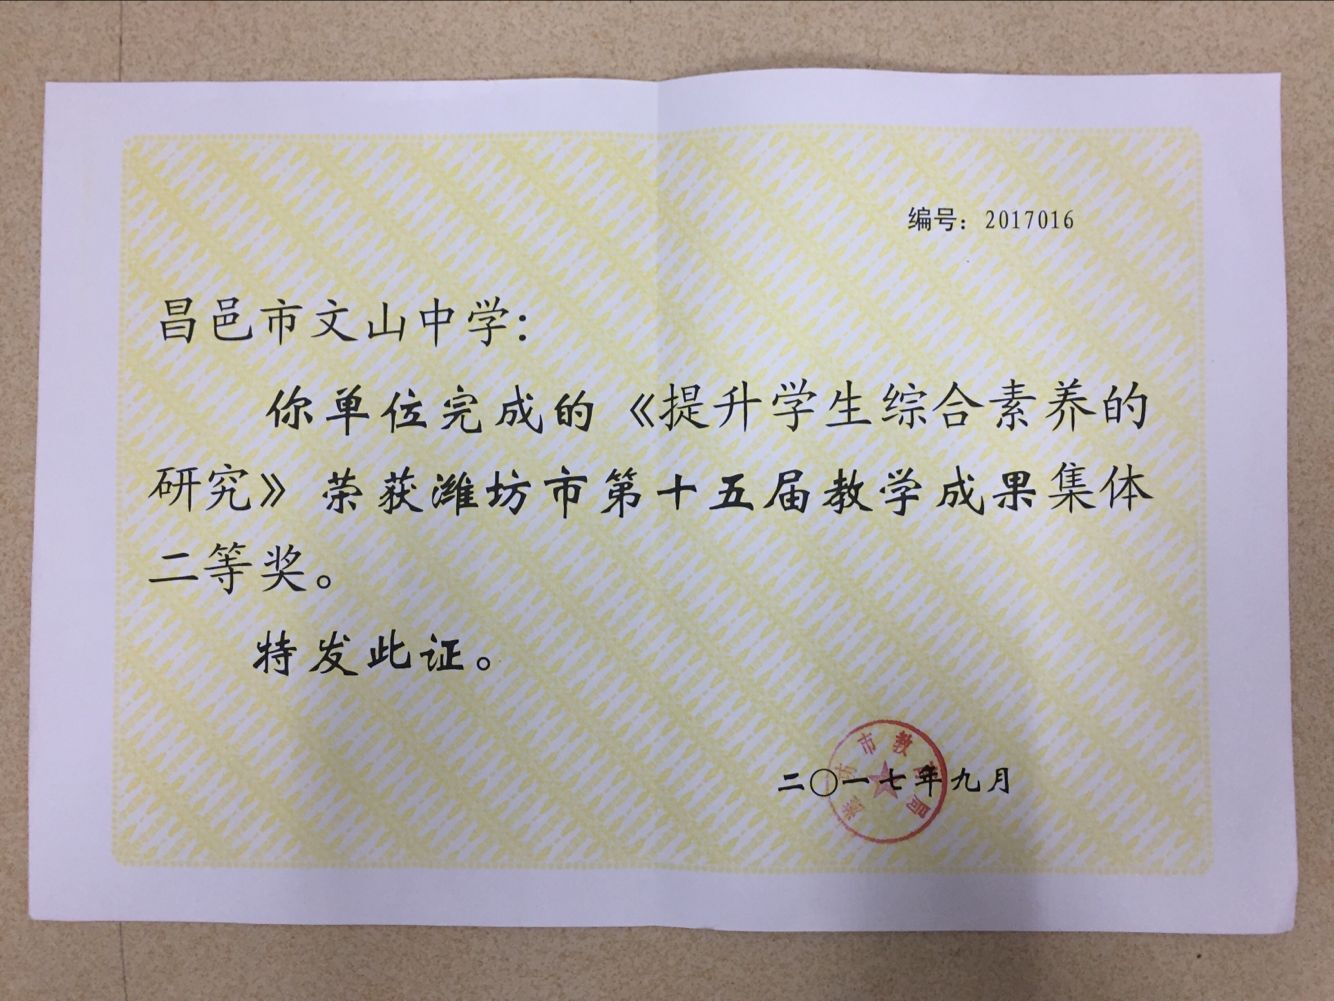 编号：2017016
昌邑市文山中学：
你单位完成的《提升学生综合素养的
研究》荣获潍坊市第十五届教学成果集体
二等奖。
特发此证。
潍坊市教育局
二〇一七年九月